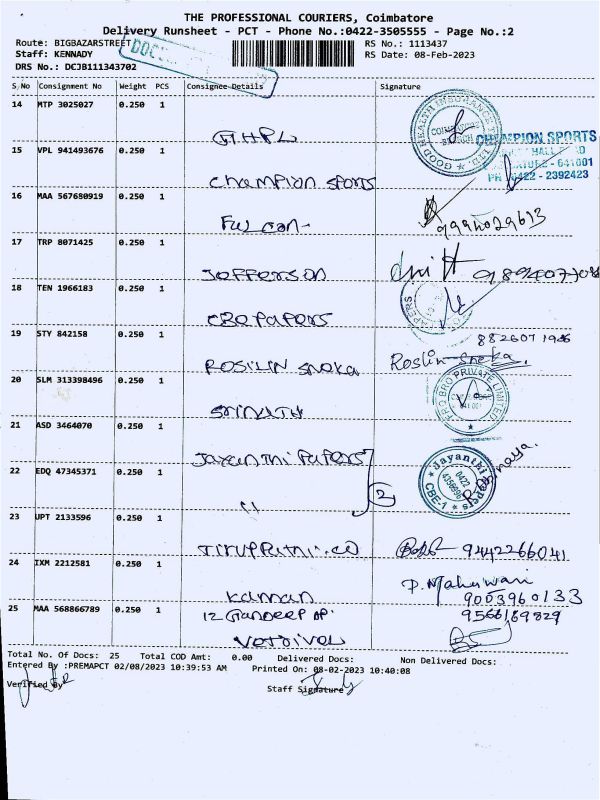 THE PROFESSIONAL COURIERS, Coimbatore
Delivery Runsheet - PCT - Phone No.:0422-3505555 - Page No.:2
Route: BIGBAZARSTREET RS No.: 1113437
Staff: KENNADY RS Date: 08-Feb-2023
DRS No.: DCJB111343702
S.No Consignment No Weight PCS Consignee Details Signature
14 MTP 3025027 0.250 1
GHPL
GOOD HEALTH INSURANCE TPA LTD.
COIMBATORE BRANCH
15 VPL 941493676 0.250 1
Champion Sports
CHAMPION SPORTS
HALL
- 641001
PH 0422 - 2392423
16 MAA 567680919 0.250 1
Falcon-
9994029613
17 TRP 8071425 0.250 1
Jefferson
18 TEN 1966183 0.250 1
CBE Papers
PAPERS
19 STY 842158 0.250 1
8826071946
Rosilin Sneka
Roslin Sneka.
20 SLM 313398496 0.250 1
Srinath
BRO PRIVATE LIMITED
21 ASD 3464070 0.250 1
Jayanthi Papers
Jayanthi Papers
0422
CBE-1
22 EDQ 47345371 0.250 1
11
2
23 UPT 2133596 0.250 1
9442266041
24 IXM 2212581 0.250 1
Kannan
P. Maheswari
9003960133
25 MAA 568866789 0.250 1
9566169829
Vetrivel
Total No. Of Docs: 25 Total COD Amt: 0.00 Delivered Docs: Non Delivered Docs:
Entered By :PREMAPCT 02/08/2023 10:39:53 AM Printed On: 08-02-2023 10:40:08
Verified By
Staff Signature